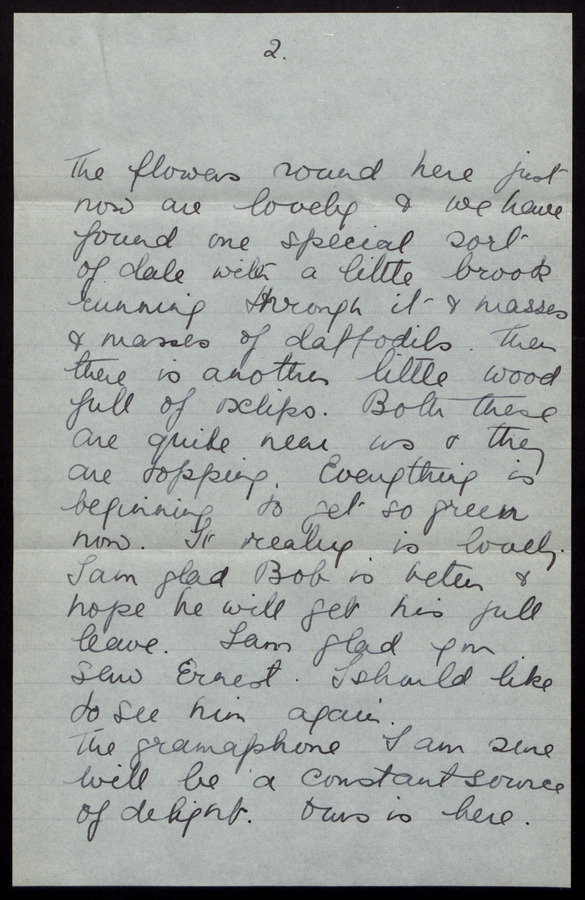 2.
The flowers round here just
now are lovely & we have
found one special sort
of dale with a little brook
running through it & masses
& masses of daffodils. Then
there is another little wood
full of oxlips. Both these
are quite near us & they
are topping. Everything is
beginning to get so green
now. It really is lovely.
I am glad Bob is better &
hope he will get his full
leave. I am glad you
saw Ernest. I should like
to see him again.
The gramaphone I am sure
will be a constant source
of delight. Ours is here.